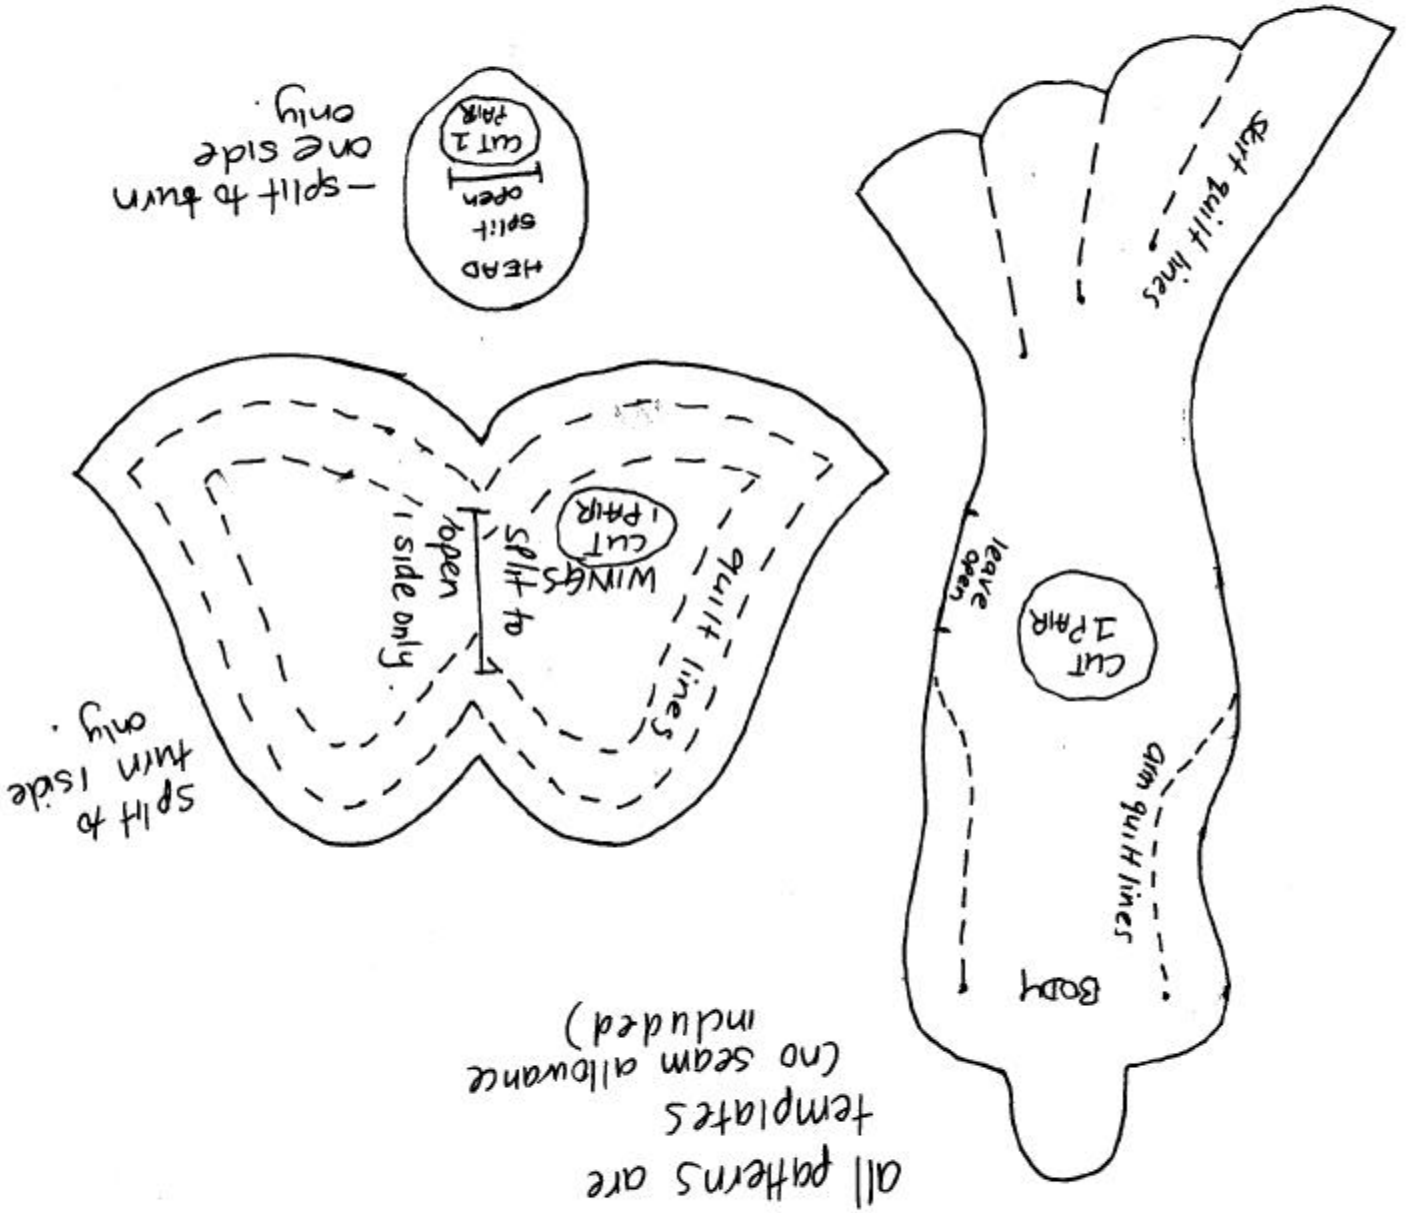 all patterns are
templates
(no seam allowance
included)
BODY
arm quilt lines
CUT
1 PAIR
leave
open
skirt quilt lines
split to
turn 1 side
only.
quilt lines
WINGS
CUT
1 PAIR
split to
open
1 side only
HEAD
split
open
CUT 1
PAIR
- split to turn
one side
only.